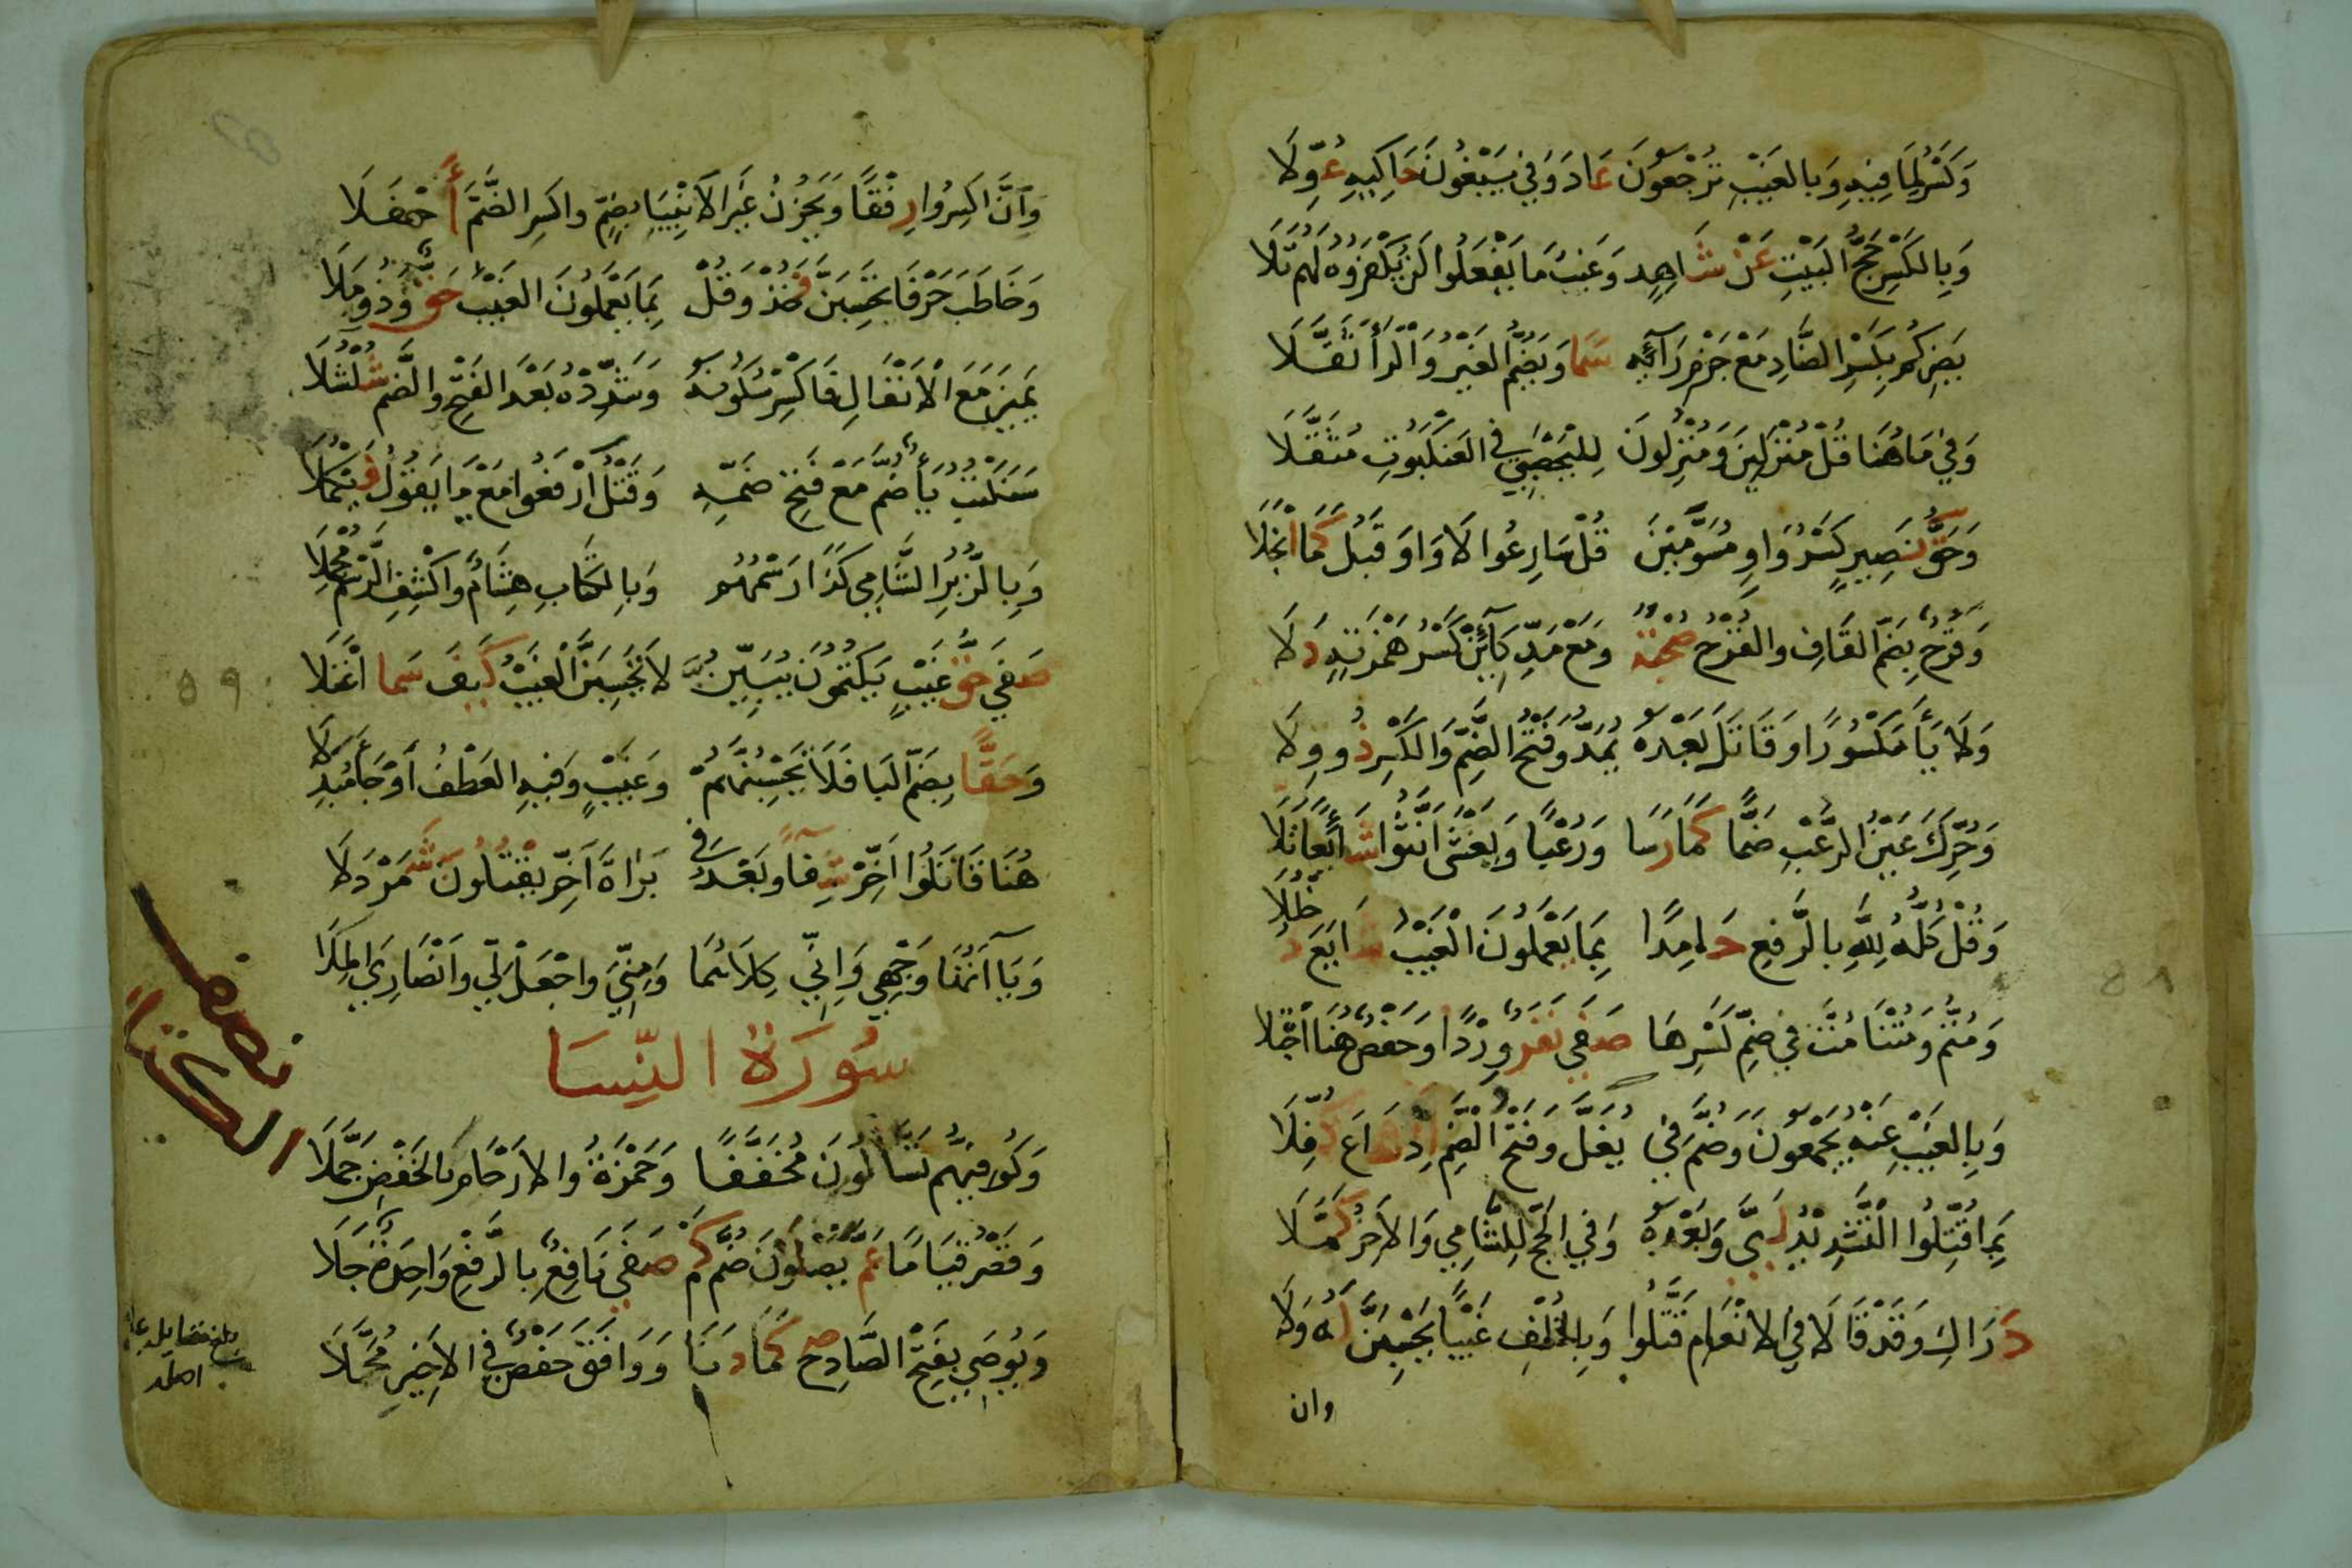 وَكَسْرُ لِمَا فِيْهِ وَبِالغَيْبِ تُرْجَعُونَ عَادَ وَفِي يَبْغُونَ حَاكِيهِ عُوِّلَا
وَبِالكَسْرِ حَجُّ البَيْتِ عَنْ شَاهِدٍ وَغَيْبُ مَا يَفْعَلُوا لَنْ يُكْفَرُوهُ لَهُمْ تَلَا
يَضِرْكُمْ بِكَسْرِ الضَّادِ مَعْ جَزْمِ رَائِهِ سَمَا وَيَضُمُّ الغَيْرُ وَالرَّا ثَقَّلَا
وَفِي مَا هُنَا قُلْ مُنْزَلِينَ وَمُنْزِلُونَ لِليَحْصَبِي فِي العَنْكَبُوتِ مُثَقِّلَا
وَحَقُّ نَصِيرٍ كَسْرُ وَاوِ مُسَوِّمِيْنَ قُلْ سَارِعُوا لَا وَاوَ قَبْلُ كَمَا انْجَلَا
وَقَرْحٌ بِضَمِّ القَافِ وَالقَرْحُ صُحْبَةٌ وَمَعْ مَدِّ كَائِنْ كَسْرُ هَمْزَتِهِ دَلَا
وَلَا يَا مَكْسُورًا وَقَاتَلَ بَعْدَهُ يُمَدُّ وَفَتْحُ الضَّمِّ وَالكَسْرِ ذُو وِلَا
وَحُرِّكَ عَيْنُ الرُّعْبِ ضَمًّا كَمَا رَسَا وَرُعْبًا وَيَغْشَى انَّثُوا شَائِعًا تَلَا
وَقُلْ كُلُّهُ لِلَّهِ بِالرَّفْعِ حَامِدًا بِمَا يَعْمَلُونَ الْغَيْبُ شَايَعَ دُخْلُلَا
وَمُتُّمْ وَمُتْنَا مُتَّ فِي ضَمِّ كَسْرِهَا صَفَى نَفَرٌ وِرْدًا وَحَفْصٌ هُنَا اجْتَلَا
وَبِالغَيْبِ عَنْهُ يَجْمَعُونَ وَضُمَّ فِي يَغُلَّ وَفَتْحُ الضَّمِّ إِذْ شَاعَ كُفِّلَا
بِمَا قُتِّلُوا التَّشْدِيْدُ لَبَّى وَبَعْدَهُ وَفِي الحَجِّ لِلشَّامِي وَالآخِرُ كَمَّلَا
دَرَاكِ وَقَدْ قَالَا فِي الانْعَامِ قَتَّلُوا وَبِالخُلْفِ غَيْبًا يَحْسَبَنَّ لَهُ وَلَا
وان
وَأَنَّ اكْسِرُوا رِفْقًا وَيَحْزُنُ غَيْرَ الاَنْبِيَا بِضَمٍّ وَاكْسِرِ الضَّمَّ أَحْفَلَا
وَخَاطَبَ حَرْفَا يَحْسَبَنَّ فَخُذْ وَقُلْ بِمَا يَعْمَلُونَ الغَيْبُ حَقٌّ وَذُو مَلَا
يَمِيزَ مَعَ الْانْفَالِ فَاكْسِرْ سُكُونَهُ وَشَدِّدْهُ بَعْدَ الفَتْحِ وَالضَّمِّ شُلْشُلَا
سَنَكْتُبُ يَاءٌ ضُمَّ مَعْ فَتْحِ ضَمِّهِ وَقَتْلُ ارْفَعُوا مَعْ يَا يَقُولُ فَيَكْمُلَا
وَبِالزُّبُرِ الشَّامِي كَذَا رَسْمُهُمْ وَبِالكِتَابِ هِشَامٌ وَاكْشِفِ الرَّسْمَ مُجْمِلَا
صَفَى حَقُّ غَيْبٍ يَكْتُمُونَ يُبَيِّنُنَّ لَا تَحْسَبَنَّ الْغَيْبُ كَيْفَ سَمَا اعْتَلَا
وَحَقًّا بِضَمِّ البَا فَلَا يَحْسِبُنَّهُمْ وَغَيْبٍ وَفِيهِ العَطْفُ أَوْ جَا مُبْدَلَا
هُنَا قَاتَلُوا اَخِّرْ شِفَاءً وَبَعْدُ فِي بَرَاءَةَ اَخِّرْ يَقْتُلُونَ شَمَرْدَلَا
وَيَاآتُهَا وَجْهِي وَإِنِّي كِلَاهُمَا وَمِنِّي وَاجْعَلْ لِّي وَانْصَارِي المِلَا
سُورَةُ النِّسَا
وَكُوفِيُّهُمْ تَسَّاءَلُونَ مُخَفَّفًا وَحَمْزَةُ وَالارْحَامَ بِالخَفْضِ جَمَّلَا
وَقَصْرُ قِيَامًا عَمَّ يَصْلَوْنَ ضُمَّ كَمْ صَفَى نَافِعٌ بِالرَّفْعِ وَاحِدَةٌ جَلَا
وَيُوصَى بِفَتْحِ الصَّادِ صَحَّ كَمَا دَنَا وَوَافَقَ حَفْصٌ فِي الاخِيرِ مُجَمَّلَا
نصف
الكتاب
بلغ مقابلة على
اصله
٥٩
٥٨